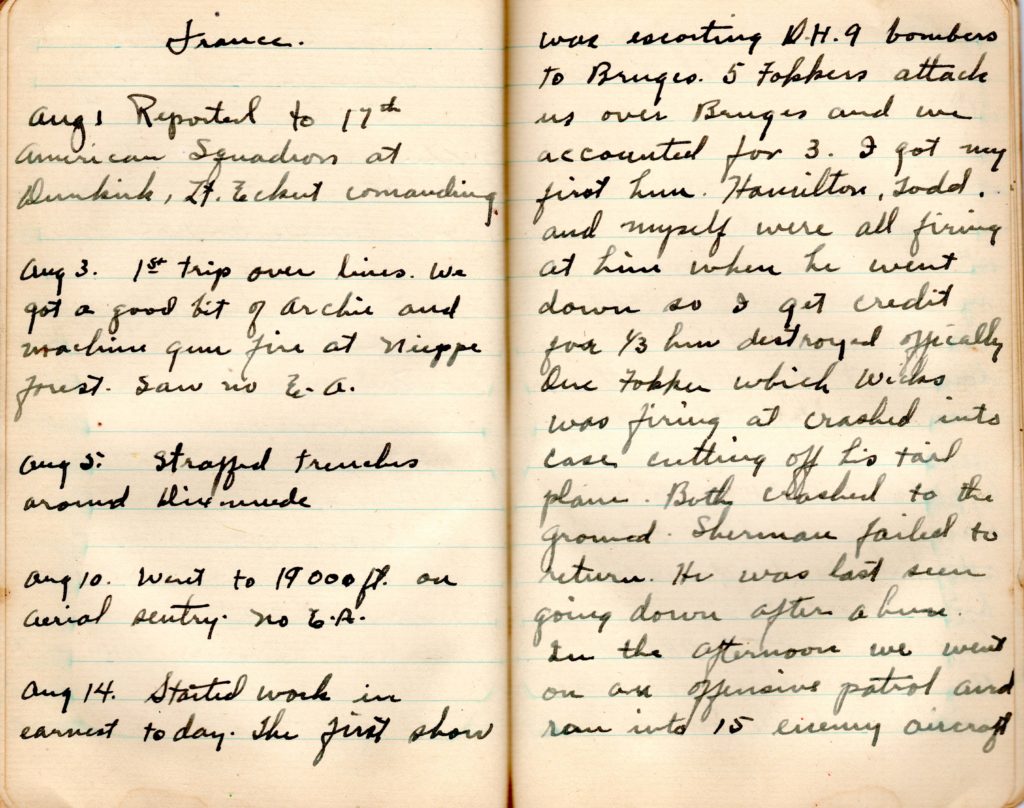 France.
Aug 1 Reported to 17th
American Squadron at
Dunkirk, Lt. Eckert comanding
Aug 3. 1st trip over lines. We
got a good bit of Archie and
machine gun fire at Nieppe
Forest. Saw no E.A.
Aug 5. Straffed trenches
around Dixmuede
Aug 10. Went to 19000 ft. on
aerial sentry. No E.A.
Aug 14. Started work in
earnest today. The first show
was escorting D.H.9 bombers
to Bruges. 5 Fokkers attack
us over Bruges and we
accounted for 3. I got my
first hun. Hamilton, Todd,
and myself were all firing
at him when he went
down so I get credit
for 1/3 hun destroyed offically
One Fokker which Wicks
was firing at crashed into
Case cutting off his tail
plane. Both crashed to the
ground. Shearman failed to
return. He was last seen
going down after a hun.
In the afternoon we went
on an offensive patrol and
ran into 15 enemy aircraft